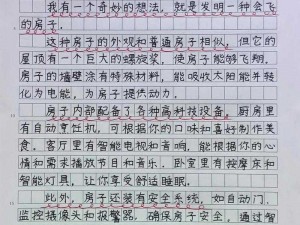 我有一个奇妙的想法,就是发明一种会飞
的房子。
这种房子的外观和普通房子相似,但它的
屋顶有一个巨大的螺旋桨,使房子能够飞翔。
房子的墙壁涂有特殊材料,能吸收太阳能并转
化为电能,为房子提供动力。
房子内部配备了各种高科技设备。厨房里
有自动烹饪机,可根据你的口味和喜好制作美
食。客厅里有智能电视和音响,能根据你的心
情和需求播放节目和音乐。卧室里有按摩床和
智能灯具,让你享受舒适睡眠。
此外,房子还装有安全系统,如自动门、
监控摄像头和报警器,确保房子安全,通过智